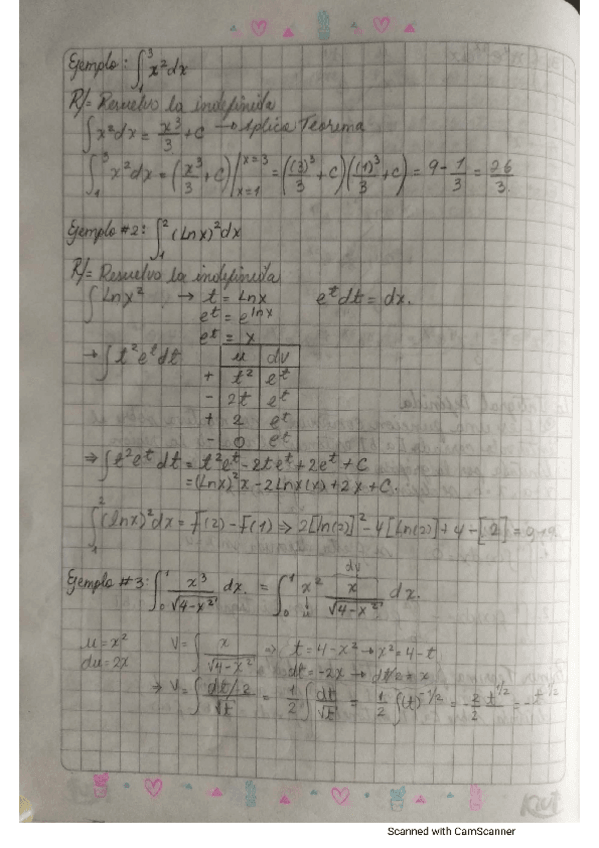 Ejemplo: ∫₁³ x²dx
R/= Resuelvo la indefinida
∫x²dx = x³/3 + C → Aplico Teorema
∫₁³ x²dx = (x³/3 + C)|ₓ₌₁ˣ⁼³ = ((3)³/3 + C)((1)³/3 + C) = 9 - 1/3 = 26/3
Ejemplo #2: ∫₁² (Lnx)²dx
R/= Resuelvo la indefinida
∫Lnx² → t = Lnx eᵗdt = dx.
eᵗ = eˡⁿˣ
eᵗ = x
→ ∫t²eᵗdt u dv
+ t² eᵗ
- 2t eᵗ
+ 2 eᵗ
- 0 eᵗ
⇒ ∫t²eᵗdt = t²eᵗ - 2teᵗ + 2eᵗ + C
= (Lnx)²x - 2Lnx(x) + 2x + C.
∫₁² (lnx)²dx = F(2) - F(1) ⇒ 2[ln(2)]² - 4[Ln(2)] + 4 - [2] =
dv
Ejemplo #3: ∫₀¹ x³/√4-x² dx. = ∫₀¹ x² x/√4-x² dx.
u
u = x² V = ∫ x/√4-x² ⇒ t = 4-x² → x² = 4-t
du = 2x dt = -2x →
⇒ V = ∫ dt/-2/√t = -1/2 ∫ dt/√t = 1/2 ∫(t)⁻¹/² = -2/2 t¹/² = -t¹/²
Scanned with CamScanner